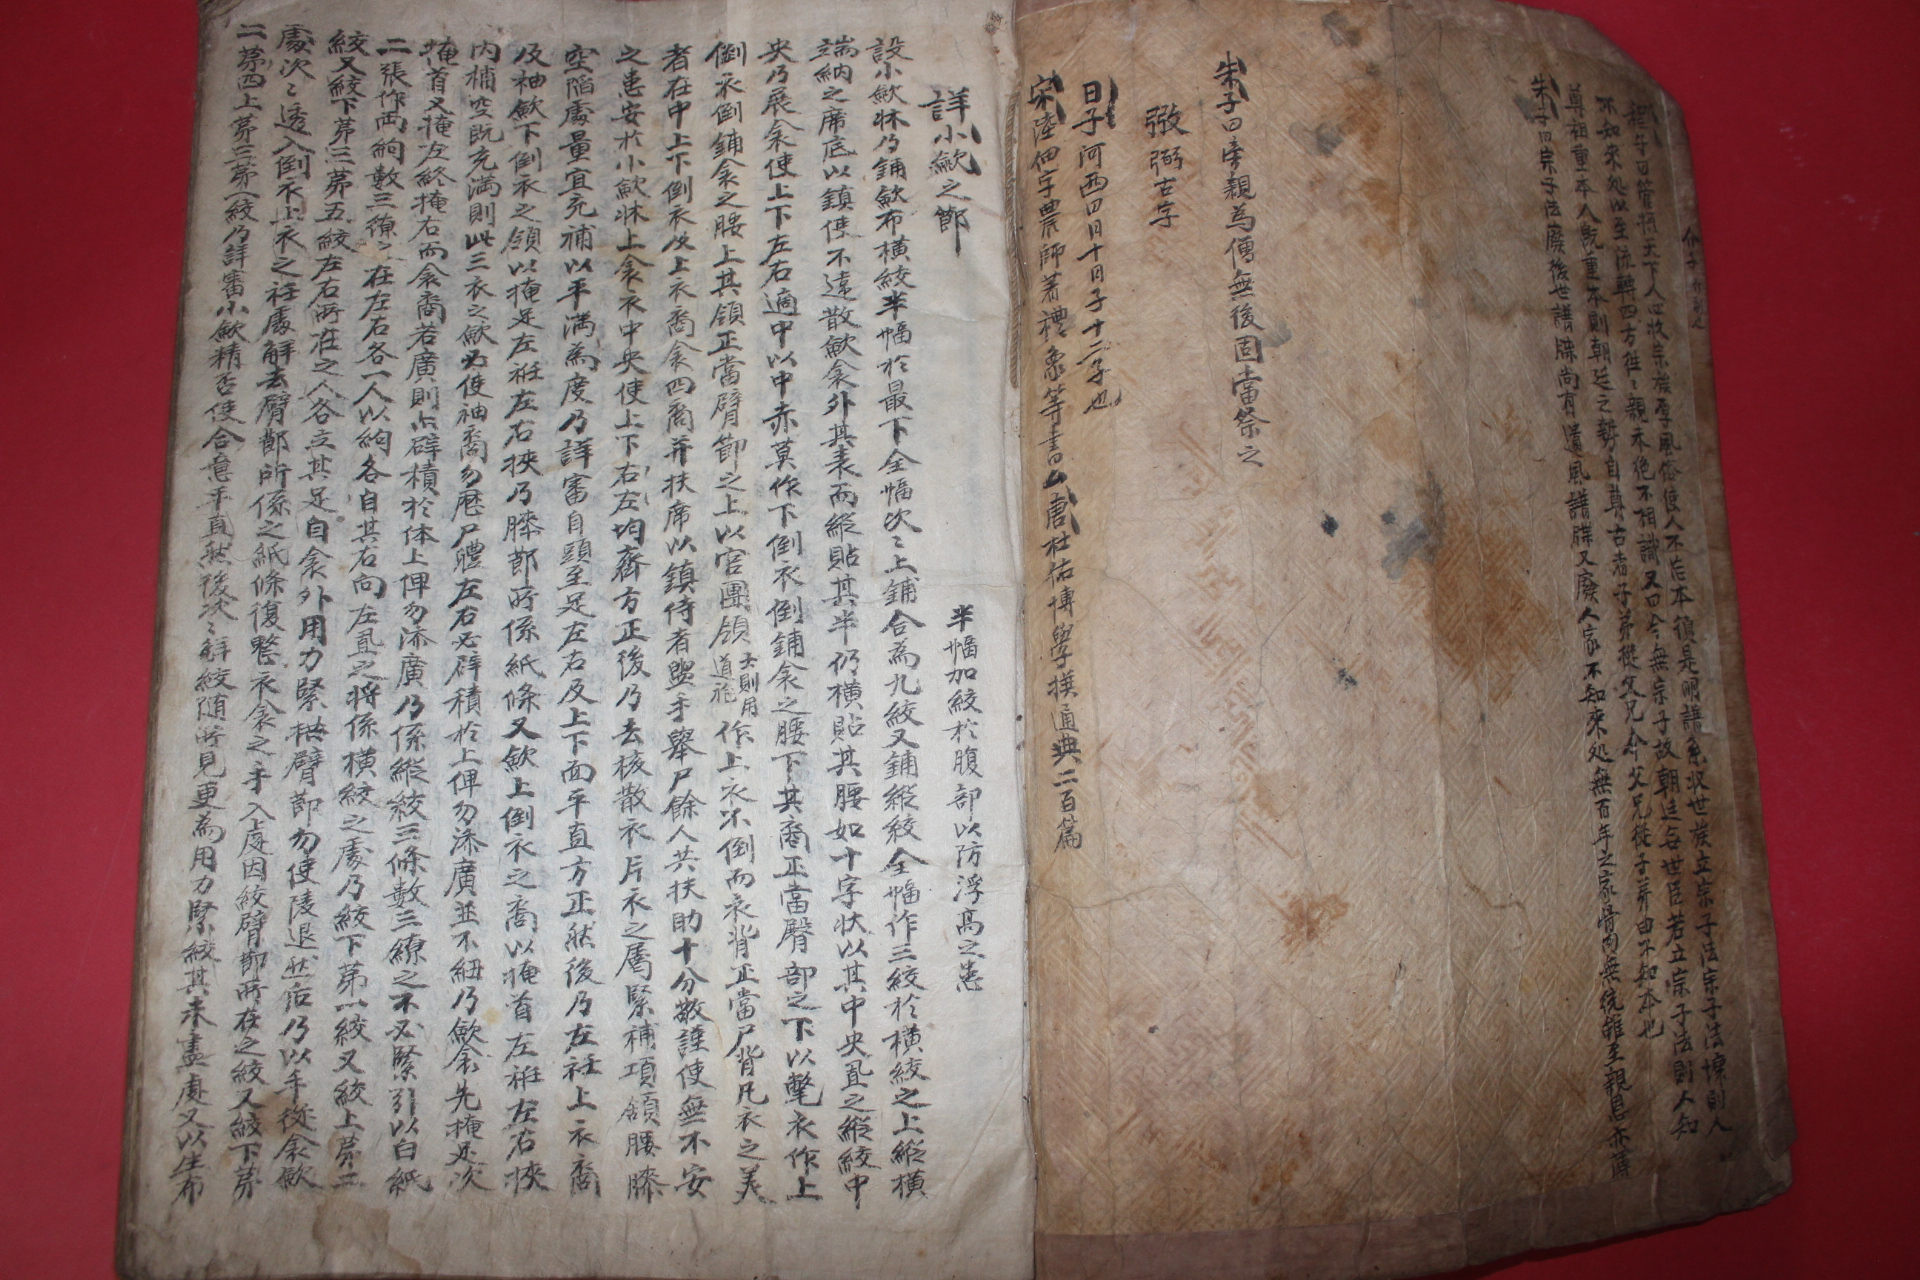 介子
程子曰管攝天下人心收宗族厚風俗使人不忘本須是明譜系收世族立宗子法宗子法壞則人
不知來処以至流轉四方徃〻親未絶不相識又曰今無宗子故朝廷無世臣若立宗子法則人知
尊祖重本人既重本則朝廷之勢自尊古者子弟從父兄今父兄從子弟由不知本也
朱子曰宗子法廢後世譜牒尚有遺風譜牒又廢人家不知來処無百年之家骨肉無統雖至親恩亦薄
朱子曰旁親為僧無後固當祭之
弼古字
日子河西四日十日子十二子也
宋陸佃字農師著禮象等書 唐杜佑博學撰通典二百篇
詳小歛之節
半幅加絞於腹部以防浮高之患
設小歛牀乃鋪歛布橫絞半幅於最下全幅次〻上鋪合為九絞又鋪縱絞全幅作三絞於橫絞之上縱橫
端納之席底以鎮使不遠散歛衾外其表而縱貼其半仍橫貼其腰如十字狀以其中央置之縱絞中
央乃展衾使上下左右適中以中赤莫作下倒衣倒鋪衾之腰下其裔正當臀部之下以氅衣作上
倒衣倒鋪衾之腰上其領正當臂節之上以官團領士則用道袍作上衣不倒而衣背正當尸背凡衣之美
者在中上下倒衣次上衣裔衾四裔并扶席以鎮侍者盥手擧尸餘人共扶助十分敬謹使無不安
之患安於小歛牀上衾衣中央使上下右左均齊方正後乃去核散衣片衣之屬緊補項頷腰膝
空陷處量宜充補以平滿為度乃詳審自頭至足左右及上下面平直方正然後乃左衽上衣裔
及袖歛下倒衣之領以掩足左衽左右挾乃膝節所係紙條又歛上倒衣之裔以掩首左衽左右挾
內補空既充滿則此三衣之歛必使袖裔勿壓尸體左右必辟積於上俾勿添廣並不紐乃歛衾先掩足次
掩首又掩左終掩右而衾裔若廣則亦辟積於体上俾勿添廣乃係縱絞三條數三繚之不必緊引以白紙
二張作兩絇數三繚之在左右各一人以絇各自其右向左置之將係橫絞之處乃絞下第一絞又絞上第二
絞又絞下第三第五絞左右所在之人各立其足自衾外用力緊拱臂節勿使陵退然后乃以手從衾歛
處次〻透入倒衣上衣之衽處解去臂節所係之紙條復整衣衾之手入處因絞臂節所在之絞又絞下第
二第四上第三第一絞乃詳審小歛精否使合意平直然後次〻解絞随所見更為用力緊絞其未盡處又以生布